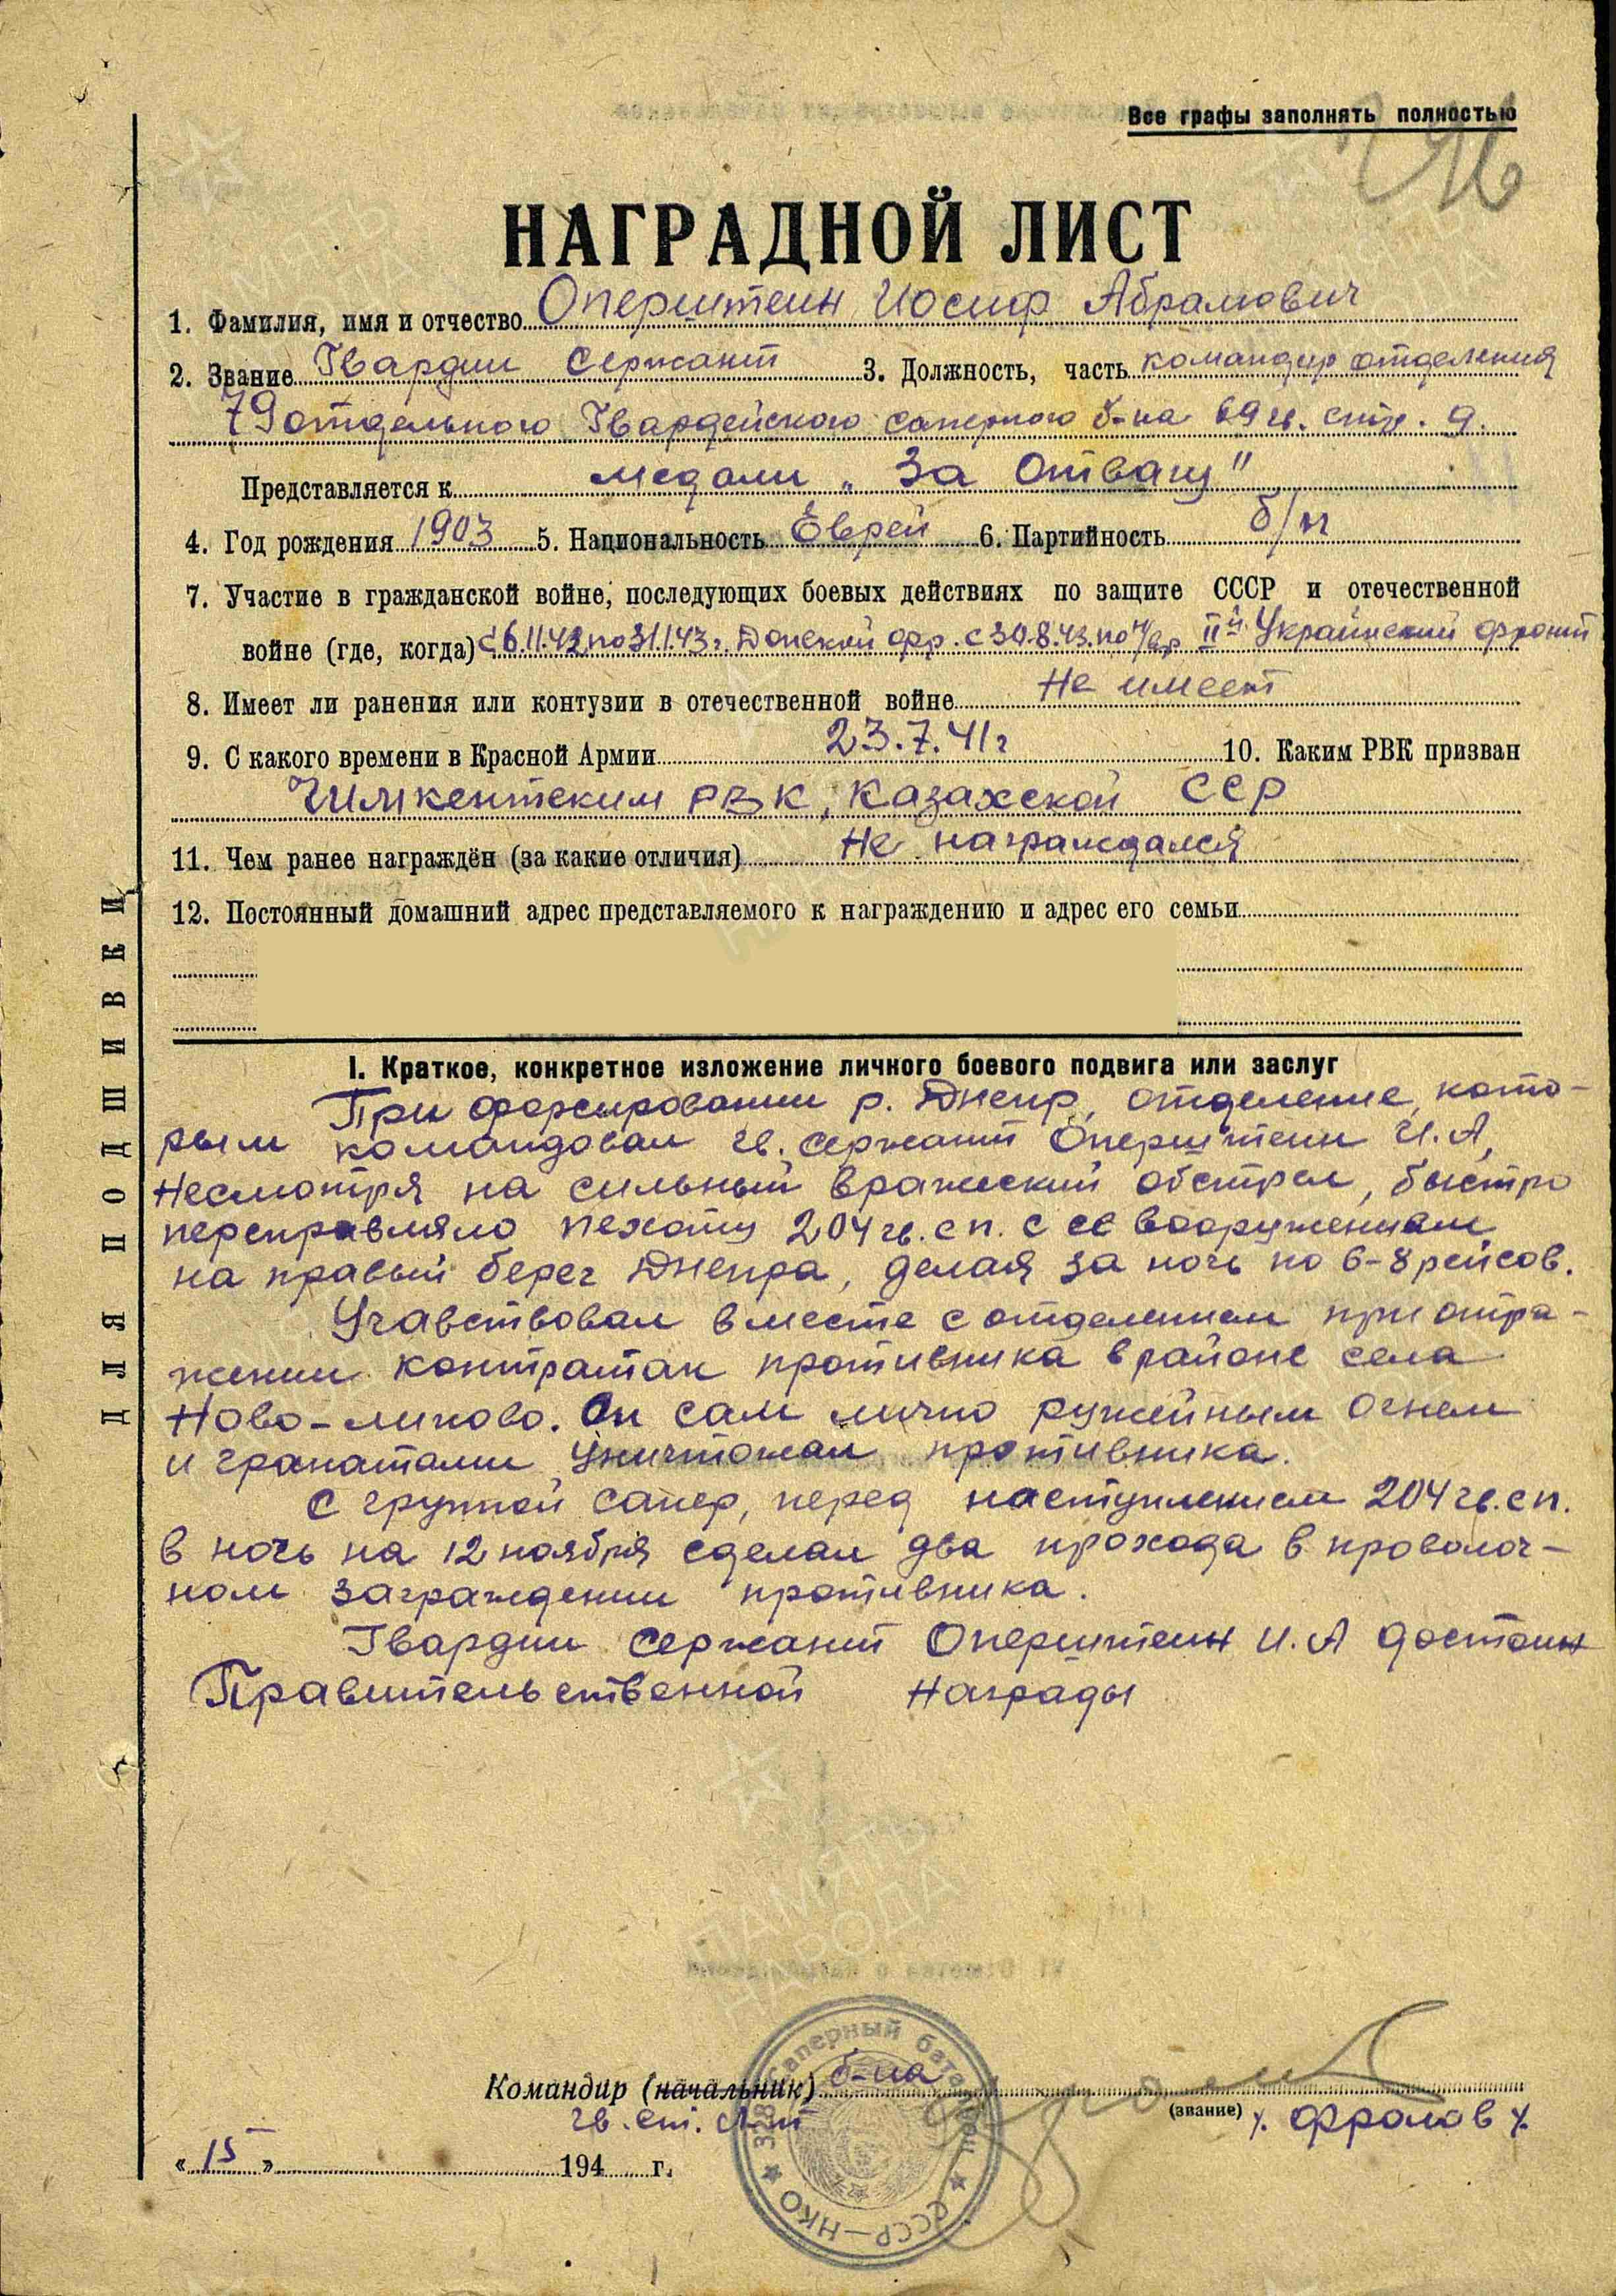 Все графы заполнять полностью
НАГРАДНОЙ ЛИСТ
1. Фамилия, имя и отчество Оперштеин Иосиф Абрамович
2. Звание Гвардии Сержант 3. Должность, часть командир отделения
79 отдельного Гвардейского саперного б-на 69 гв. стр. д.
Представляется к медали „За Отвагу"
4. Год рождения 1903 5. Национальность Еврей 6. Партийность б/п
7. Участие в гражданской войне, последующих боевых действиях по защите СССР и отечественной
войне (где, когда) с 6.11.42 по 31.1.43 г. Донской фр. с 30.8.43. по н/вр IIй Украинский фронт
8. Имеет ли ранения или контузии в отечественной войне Не имеет
9. С какого времени в Красной Армии 23.7.41 г 10. Каким РВК призван
Чимкентским РВК, Казахской ССР
11. Чем ранее награждён (за какие отличия) Не награждался
12. Постоянный домашний адрес представляемого к награждению и адрес его семьи
ДЛЯ ПОДШИВКИ
I. Краткое, конкретное изложение личного боевого подвига или заслуг
При форсировании р. Днепр, отделение, кото-
рым командовал гв. сержант Оперштеин И.А,
Несмотря на сильный вражеский обстрел, быстро
переправляло пехоту 204 гв. сп. с ее вооружением
на правый берег Днепра, делая за ночь по 6-8 рейсов.
Учавствовал вместе с отделением при отра-
жении контратак противника в районе села
Ново-липово. Он сам лично ружейным огнем
и гранатами уничтожал противника.
С группой сапер, перед наступлением 204 гв. сп.
в ночь на 12 ноября сделал два прохода в проволоч-
ном заграждении противника.
Гвардии сержант Оперштеин И.А достоин
Правительственной Награды
Командир (начальник) б-на
гв. ст. л-т (звание) /. Фролов /.
«15» 194 г.
328 Саперный батальон ★ СССР—НКО ★
ПАМЯТЬ
НАРОДА